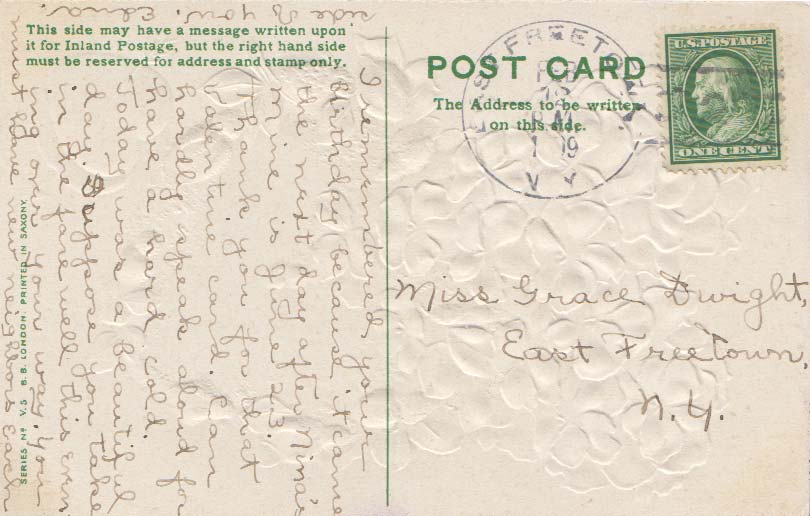 This side may have a message written upon
it for Inland Postage, but the right hand side
must be reserved for address and stamp only.
I remembered your
birthday because it came
the next day after Nina's
Mine is June 23.
Thank you for that
Valentine card. Can
hardly speak aloud for
have a hard cold.
Today was a beautiful
day. Suppose you take
in the farewell this even
ing over your way. You
must have new neighbors each
side of you. Edna.
SERIES No V.5 B.B. LONDON. PRINTED IN SAXONY.
POST CARD
The Address to be written
on this side.
EAST FREETOWN
FEB
1909
N Y
U.S. POSTAGE
ONE CENT
Miss Grace Dwight,
East Freetown,
N.Y.